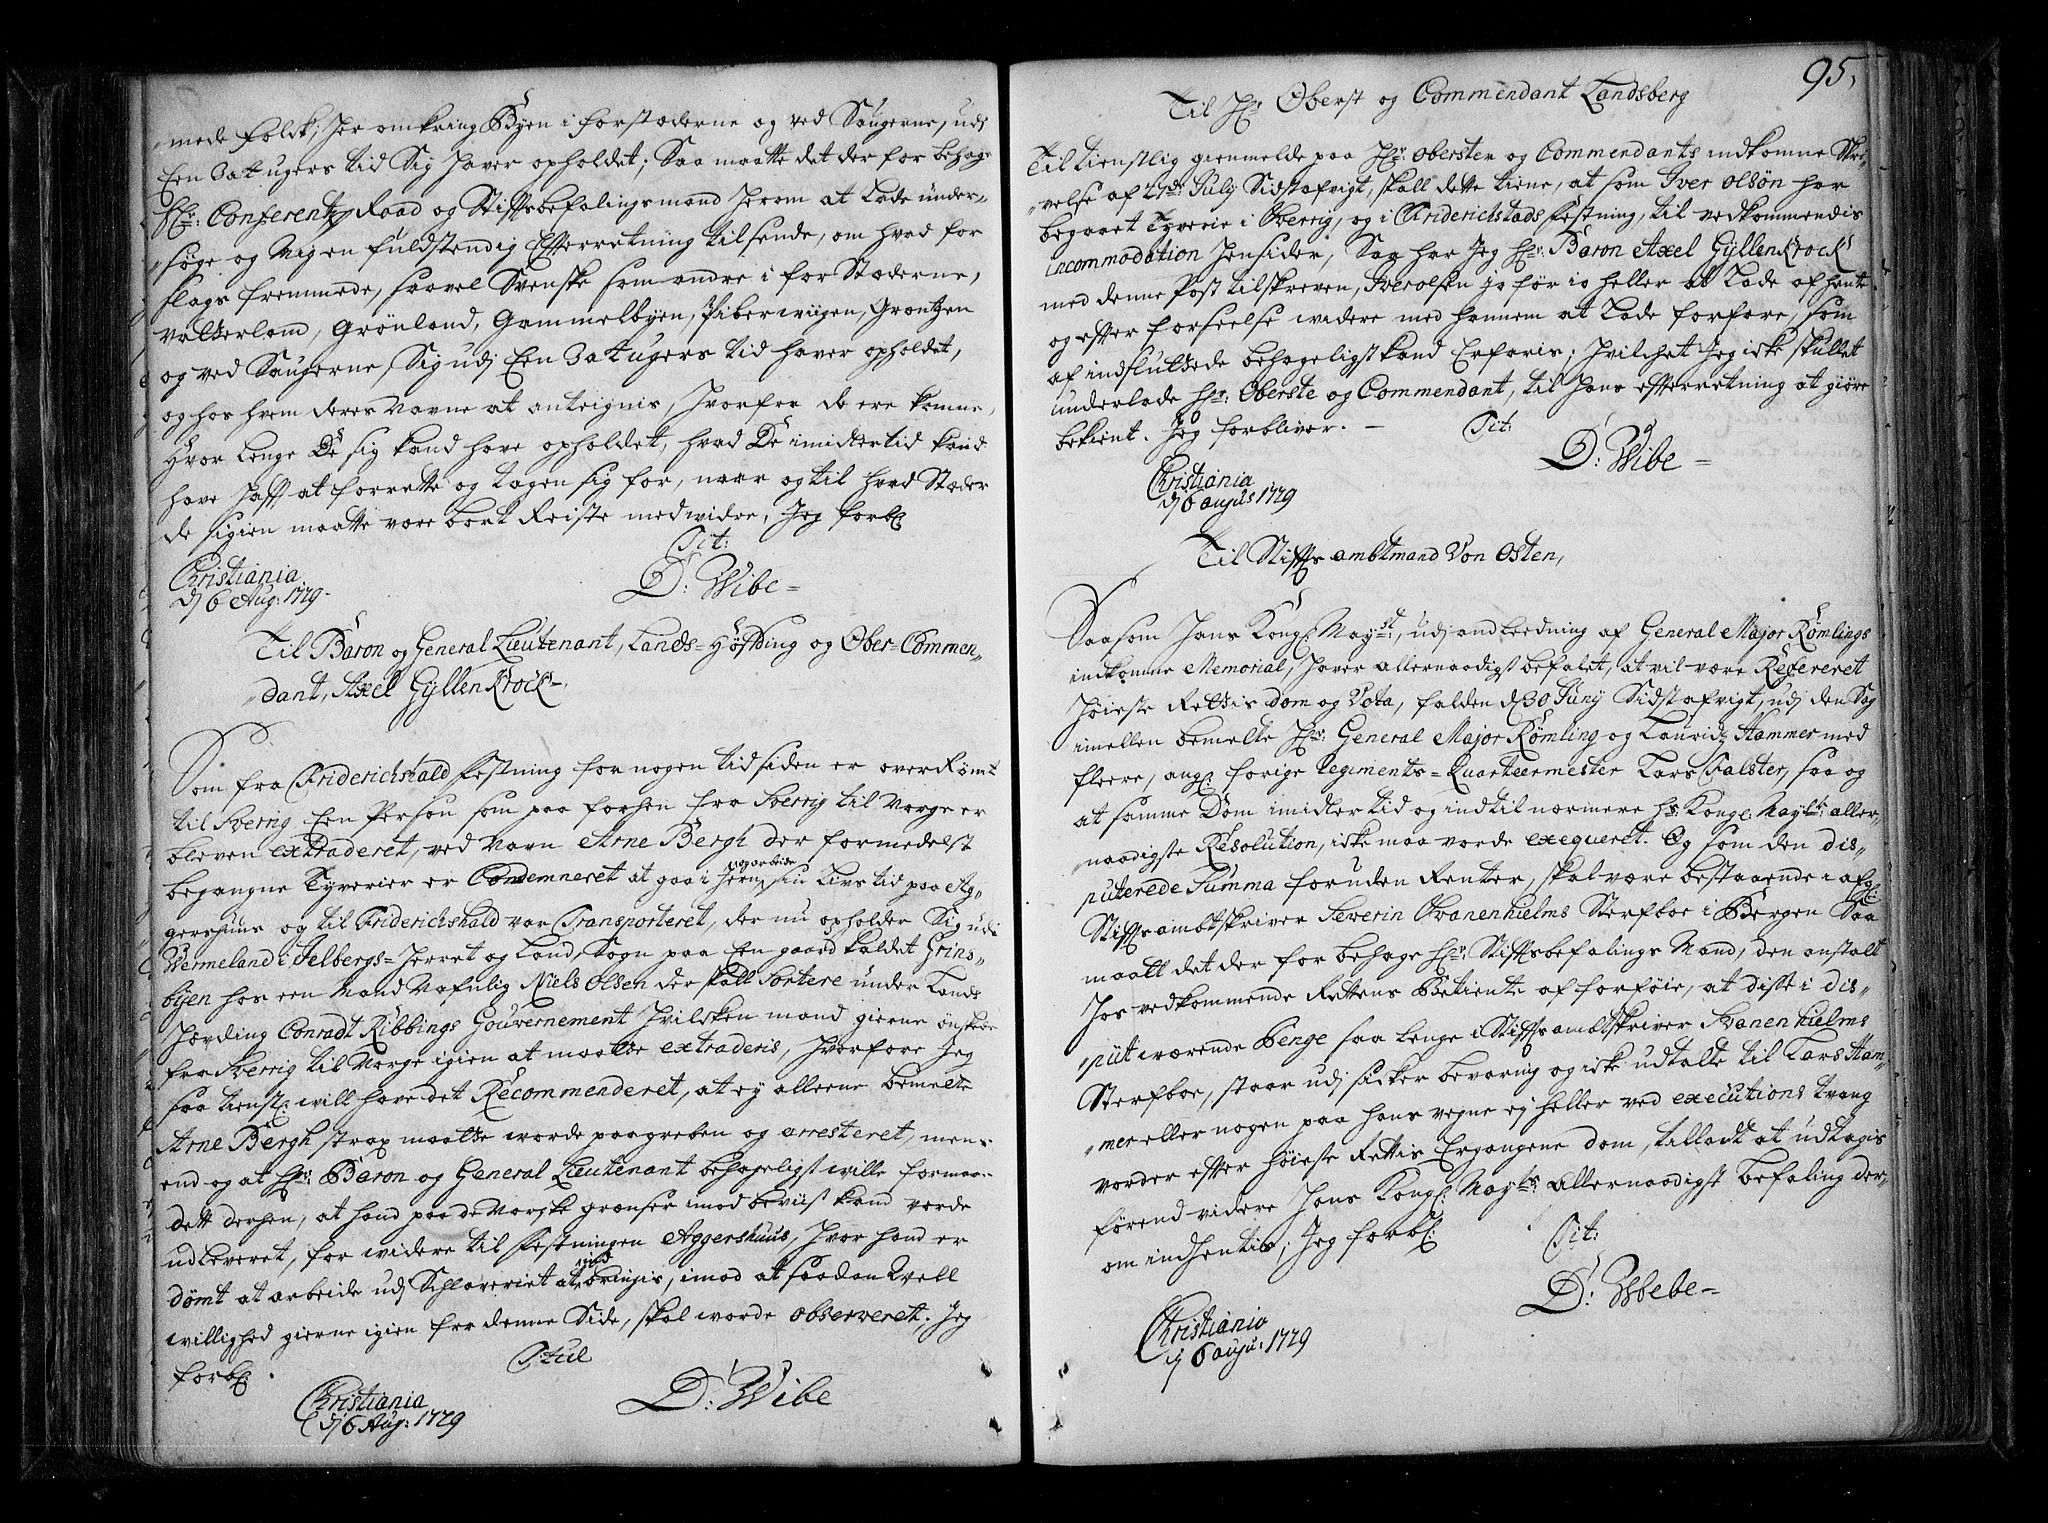 mede folck, her omkring Byen i forstæderne og ved Saugerne, udj
Een 3 a 4 ugers tid Sig haver opholdet; Saa maatte det der for behage
Hr: Conferentz Raad og Stiftsbefalingsmand herom at Lade under-
„søge og Mig en fuldstendig Efterretning tilsende, om hvad for
slags fremmede, saavel Svenske som andre i for Stæderne,
Vatterland, Grønland, Gammelbyen, Piberwiigen, Grændzen
og ved Saugerne, Sig udj Een 3 a 4 ugers tid haver opholdet,
og hos hvem deres Navne at anteignis, hvorfra de ere komne,
Hvor Lenge De sig kand have opholdet, hvad De imidlertid kand
have haft at forrette og tagen sig for, naar og til hvad Stæder
de igien maatte være bort Reiste med widre, Jeg forbl:
Tit:
Christiania
dj 6 Aug: 1729. D: Wibe =
Til Baron og General Lieutenant, Lands-Høfding og Ober-Commen„
„dant, Axel Gyllenkrock.
Som fra Friderichshald festning for nogen tid siden er overRømt
til Sverrig Een Person som paa forhen fra Sverrig til Norge er
bleven extraderet, ved Navn Arne Bergh der formedelst
og arbeide
begangne Tyverier er Condemneret at gaa i Jern sin Livs tid paa Ag„
gershuus og til Friderichshald var Transporteret, der nu opholder Sig udj
Vermeland i Jelbergs-herret og Land, Sogn paa Een gaard kaldet Grins„
byen hos een Mand Nafnlig Niels Olsen der skall Sortere under Lands
høvding Conradt Ribbings Gouvernement hvilcken mand gierne ønskes
fra Sverrig til Norge igien at maatte extraderis, hvorfore Jeg
saa tienstl: will have det Recommenderet, at ey alleene bemelte
Arne Bergh strax maatte worde paagreben og arresteret, men
end og at Hr: Baron og General Lieutenant behageligst wille formaa
dett derhen, at hand paa de Norske grænser imod beviist kand vorde
udLeveret, for widere til festningen Aggershuus, hvor hand er
ind
dømt at arbeide udj Schlaveriet at bringis, imod at saadan Well
willighed gierne igien fra denne Side, skal worde observeret. Jeg
forbl:. Titul
Christiania
dj 6 Aug: 1729 D: Wibe
95,
Til Hr: Oberst og Commendant Landsberg
Til tienstlig gienmelde paa Hr: Obersten og Commendants indkomne Skri„
„velse af 27de July Sidstafvigt, skall dette tiene, at som Iver Olsøn har
begaaet Tyverie i Sverrig, og i Friderichstads festning, til vedkommendis
incommodation hensider, Saa har Jeg Hr: Baron Axel Gyllenkrock
med denne Post tilskreven, Iver Olsen jo før io heller at Lade afhente
og efter forseelse widere med hannem at Lade forfare, som
af indsluttede behageligst kand Erfaris; hvilchet Jeg icke skullet
underlade Hr: Oberste og Commendant, til hans efterretning at giøre
bekient. Jeg forbliver. – Tit:
D: Wibe =
Christiania
dj 6 augus 1729
Til Stiftsambtmand Von Osten,
Saasom Hans Kongl: Mayst:, udj andleedning af General Major Rømlings
indkomne Memorial, haver allernaadigst befalet, at vil være Refereret
høieste Rettis dom og Vota, falden d 30 Juny Sidstafvigt, udj den Sag
imellem bemelte Hr: General Major Rømling og Lauridz Hammer med
fleere, angl: forige Regiments-Quarteermester Lars Falster, saa og
at samme Dom imidlertid og indtil nærmere Hs Kongl: Mayts: aller„
„naadigste Resolution, icke maa vorde exequeret. Og som den dis„
puterede Summa foruden Renter, skal være bestaaende i afgl:
Stiftsambtskriver Severin Svanenhielms Sterfboe i Bergen Saa
maatt det der for behage Hr: Stiftsbefalings Mand, den anstalt
hos vedkommende Rettens Betiente at forføie, at disse i dis„
„püt wærende Penge saa lenge i Stiftsambtskriver Svanenhielms
Sterfboe, staar udj sicker bevaring og icke udtalte til Lars Ham„
„mer eller nogen paa hans vegne ej heller ved executions tvang
vorder efter høieste Rettis Ergangene dom, tilladt at udtagis
førend videre Hans Kongl: Mayts: allernaadigst befaling der„
om indhentis; Jeg forbl: Tit:
D: Wibe =
Christiania
dj 6 augu: 1729